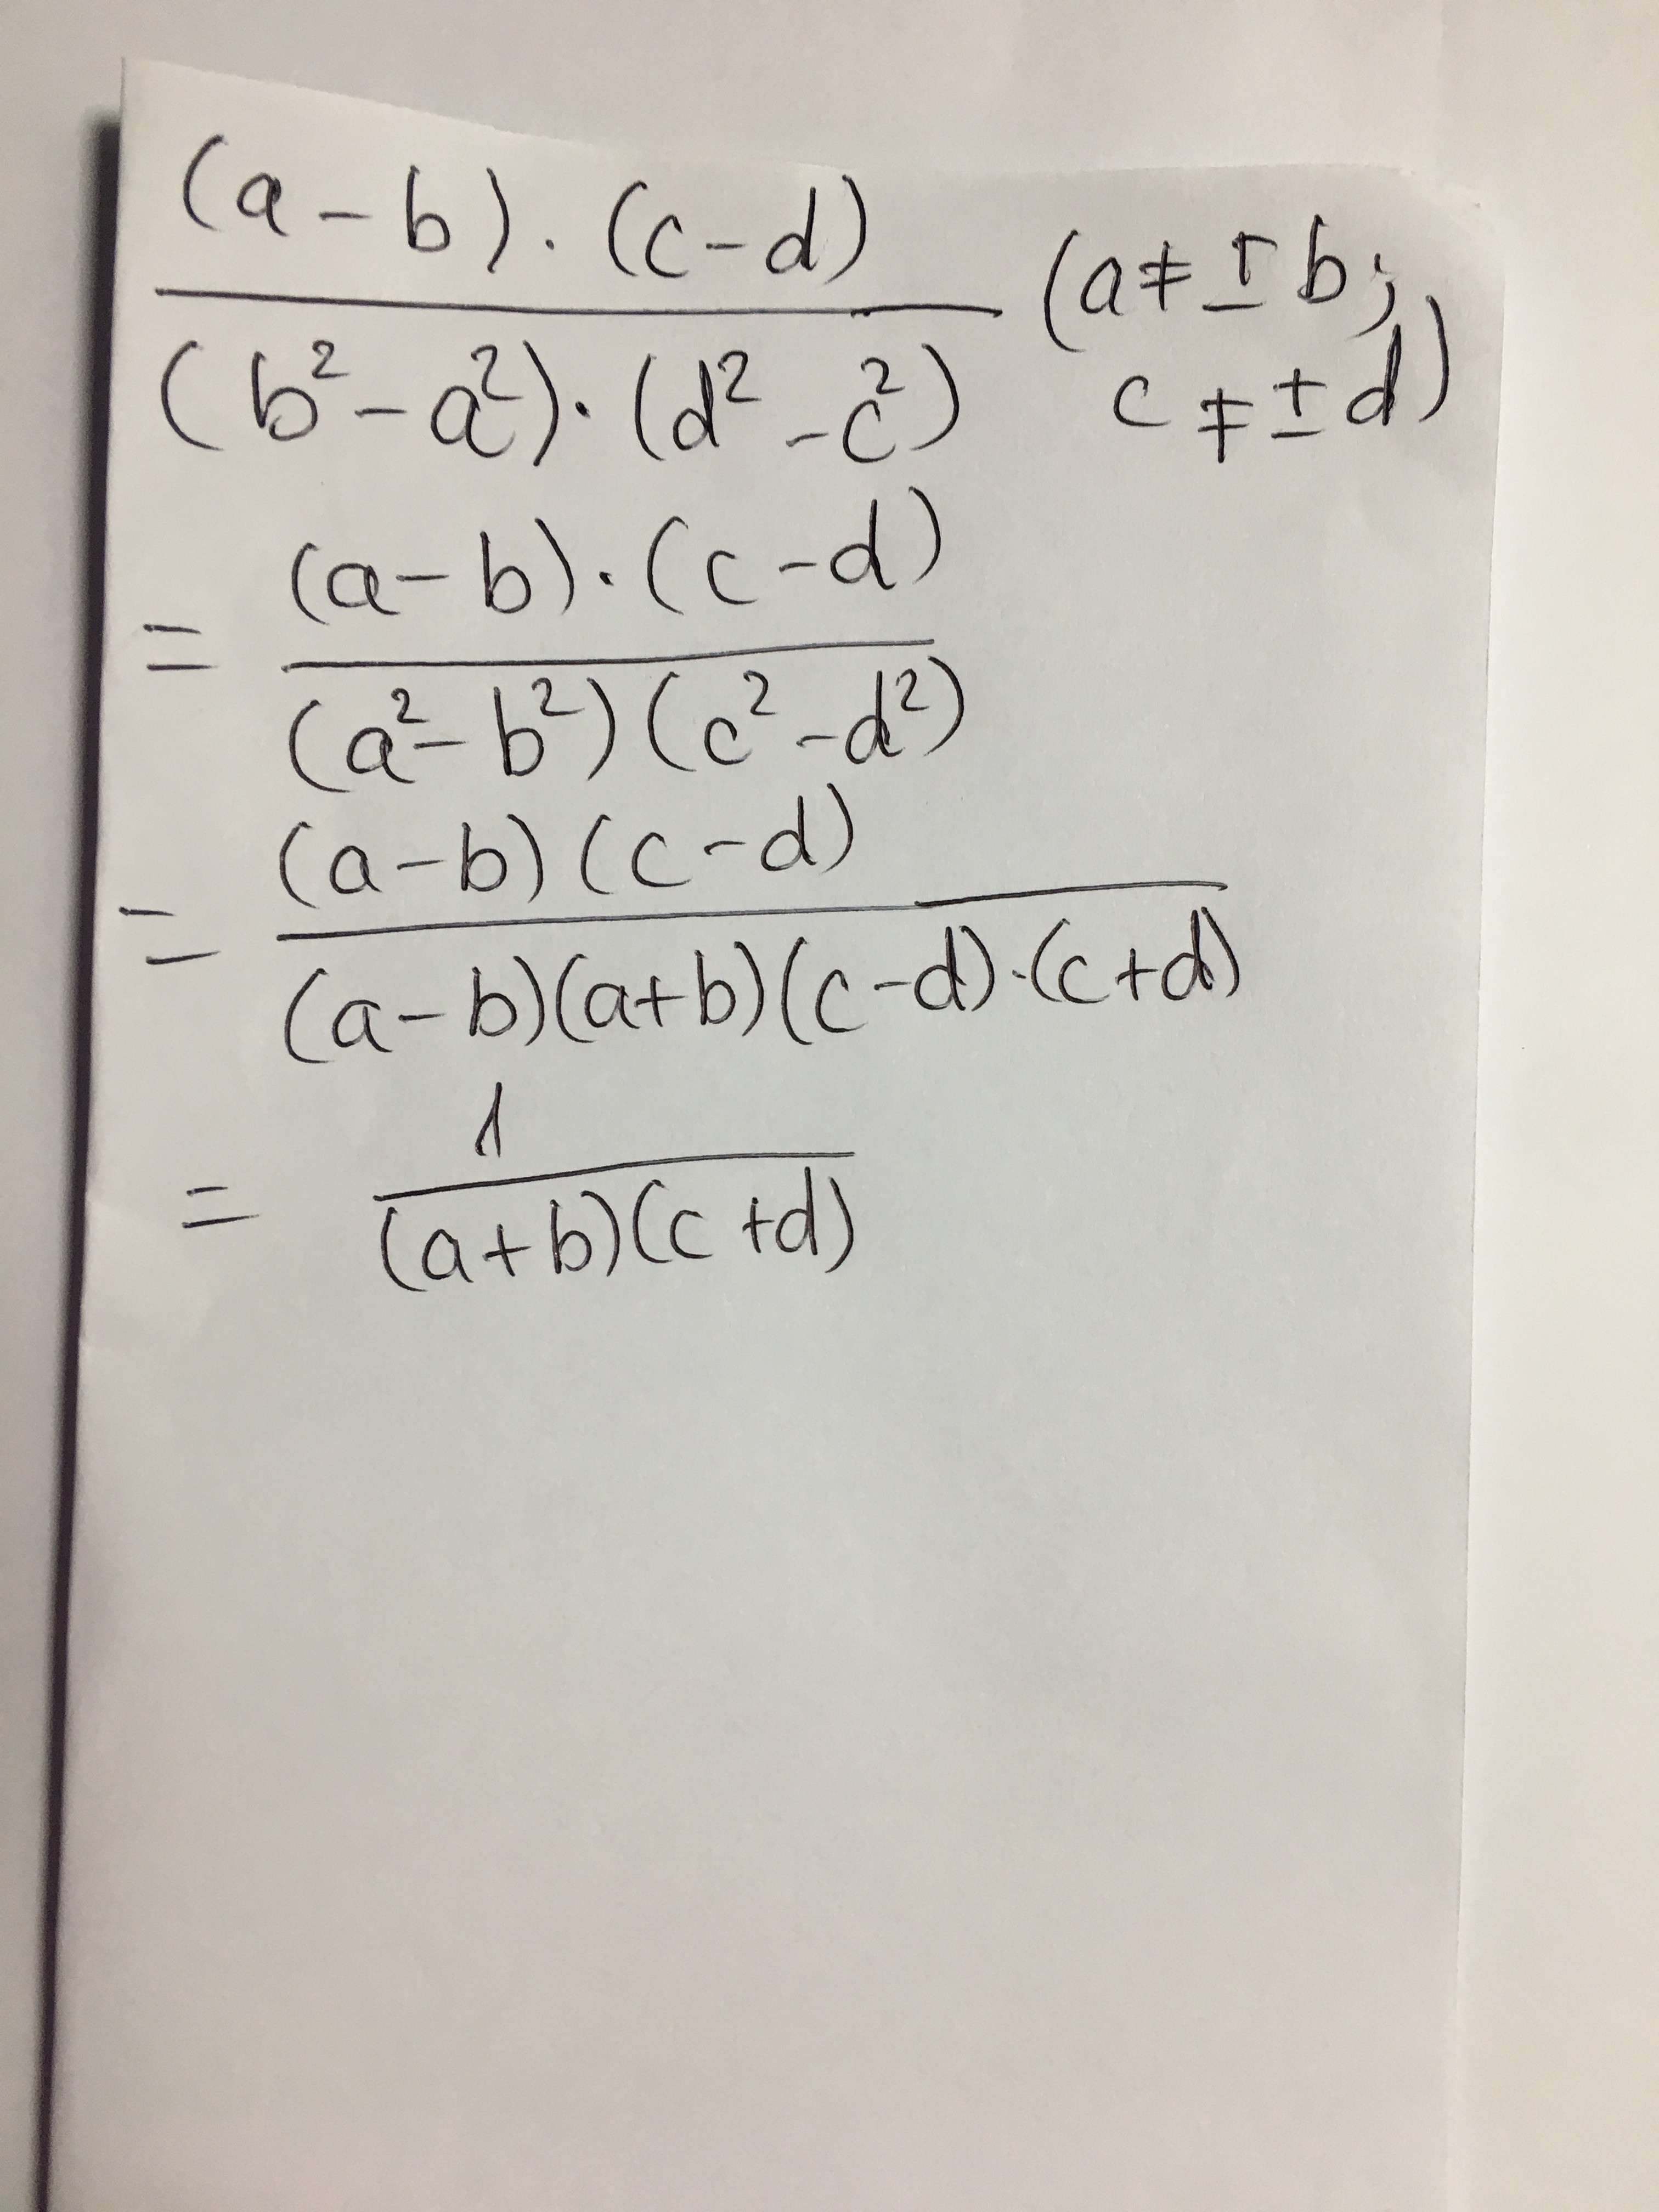 (a - b) · (c - d)
(a ≠ ± b;
(b² - a²) · (d² - c²)
c ≠ ± d)
(a - b) · (c - d)
=
(a² - b²) (c² - d²)
(a - b) (c - d)
=
(a - b)(a + b)(c - d) · (c + d)
1
=
(a + b)(c + d)